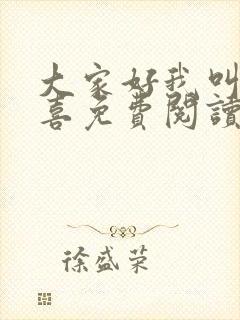 大家好我叫
喜免費閱讀
徐盛荣